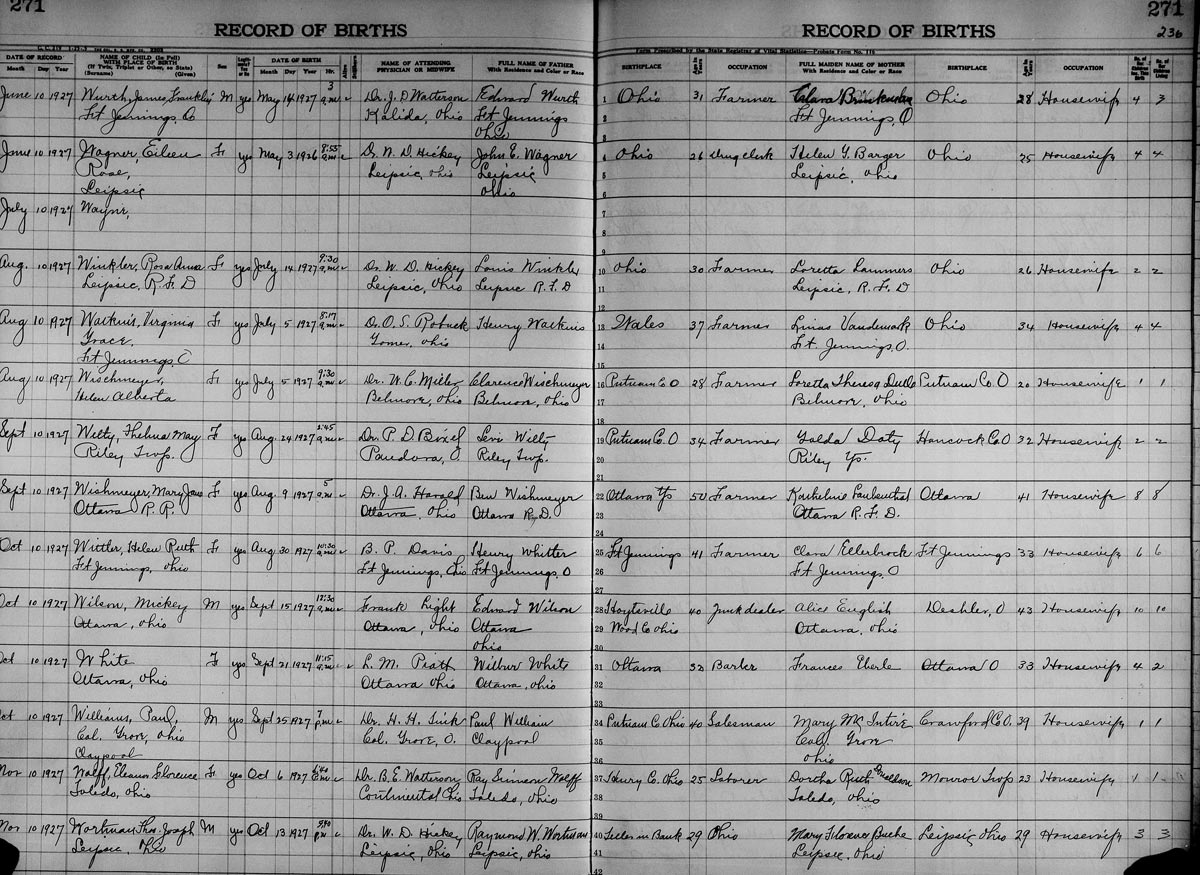 271
RECORD OF BIRTHS
RECORD OF BIRTHS
271
236
Form Prescribed by the State Registrar of Vital Statistics—Probate Form No. 116
DATE OF RECORD NAME OF CHILD (In Full) WITH PLACE OF BIRTH Sex DATE OF BIRTH NAME OF ATTENDING PHYSICIAN OR MIDWIFE FULL NAME OF FATHER With Residence and Color or Race BIRTHPLACE OCCUPATION FULL MAIDEN NAME OF MOTHER With Residence and Color or Race BIRTHPLACE OCCUPATION
Month Day Year (If Twin, Triplet or Other, so State) (Surname) (Given) Month Day Year Hr.
June 10 1927 Wurth, James Franklin M yes May 14 1927 3 a.m. Dr. J. D. Watterson Edward Wurth 1 Ohio 31 Farmer Clara Ohio 28 Housewife 4 3
Ft Jennings, O Kalida, Ohio Ft Jennings 2 Ft Jennings, O
Ohio 3
June 10 1927 Wagner, Eileen F yes May 3 1926 8:55 a.m. Dr. N. D. Hickey John E. Wagner 4 Ohio 26 Drug clerk Helen G. Barger Ohio 25 Housewife 4 4
Rose, Leipsic, Ohio Leipsic 5 Leipsic, Ohio
Leipsic Ohio 6
July 10 1927 Wayne, 7
8
9
Aug. 10 1927 Winkler, Rosa Anna F yes July 14 1927 9:30 a.m. Dr. W. D. Hickey Louis Winkler 10 Ohio 30 Farmer Loretta Lammers Ohio 26 Housewife 2 2
Leipsic, R.F.D Leipsic, Ohio Leipsic R.F.D 11 Leipsic, R.F.D
12
Aug 10 1927 Watkins, Virginia F yes July 5 1927 8:17 a.m. Dr. O. S. Robuck Henry Watkins 13 Wales 37 Farmer Vandemark Ohio 34 Housewife 4 4
Grace, Gomer, Ohio 14 Ft. Jennings, O.
Ft Jennings, O 15
Aug 10 1927 Wischmeyer, F yes July 5 1927 9:30 a.m. Dr. W. C. Miller Clarence Wischmeyer 16 Putnam C O 28 Farmer Loretta Theresa Putnam Co. O 20 Housewife 1 1
Helen Alberta Belmore, Ohio Belmore, Ohio 17 Belmore, Ohio
Sept 10 1927 Welty, Thelma May F yes Aug. 24 1927 2:45 a.m. Dr. P. D. Bixel Levi Welty 19 Putnam Co. O 34 Farmer Golda Doty Hancock Co O 32 Housewife 2 2
Riley Twp. Pandora, O Riley Twp. 20 Riley Tp.
21
Sept 10 1927 Wishmeyer, Mary Jane F yes Aug 9 1927 5 a.m. Dr. J. A. Harold Ben Wishmeyer 22 Ottawa Tp 50 Farmer Ottawa 41 Housewife 8 8
Ottawa R.R. Ottawa, Ohio Ottawa R.D. 23 Ottawa R.F.D.
24
Oct 10 1927 Wittler, Helen Ruth F yes Aug 30 1927 10:30 a.m. B. P. Davis Henry Whitter 25 Ft Jennings 41 Farmer Clara Ellerbrock Ft Jennings 33 Housewife 6 6
Ft Jennings, Ohio Ft Jennings, Ohio Ft Jennings, O 26 Ft Jennings, O
27
Oct 10 1927 Wilson, Mickey M yes Sept 15 1927 12:30 a.m. Frank Light Edward Wilson 28 Hoytsville 40 Junk dealer Alice English Deshler, O 43 Housewife 10 10
Ottawa, Ohio Ottawa, Ohio Ottawa 29 Wood Co Ohio Ottawa, Ohio
Ohio 30
Oct 10 1927 White F yes Sept 21 1927 11:15 a.m. L. M. Piatt Wilbur White 31 Ottawa 32 Barber Frances Eberle Ottawa O 33 Housewife 4 2
Ottawa, Ohio Ottawa Ohio Ottawa, Ohio 32
33
Oct 10 1927 Williams, Paul, M yes Sept 25 1927 7 p.m. Dr. H. H. Paul William 34 Putnam C. Ohio 40 Salesman Mary Mc Intire Crawford Co O. 39 Housewife 1 1
Col. Grove, Ohio Col. Grove, O. Claypool 35 Col. Grove
Claypool 36 Ohio
Nov 10 1927 Wolff, Eleanor Florence F yes Oct 6 1927 Dr. B. E. Watterson Ray Simon Wolff 37 Henry Co. Ohio 25 Laborer Ruth Monroe Twp 23 Housewife 1 1
Toledo, Ohio Continental Ohio Toledo, Ohio 38 Toledo, Ohio
39
Nov 10 1927 Wortman, Thos. Joseph M yes Oct 13 1927 p.m. Dr. W. D. Hickey Raymond W. Wortman 40 Teller in Bank 29 Ohio Mary Florence Leipsic Ohio 29 Housewife 3 3
Leipsic, Ohio Leipsic, Ohio Leipsic, Ohio 41 Leipsic, Ohio
42